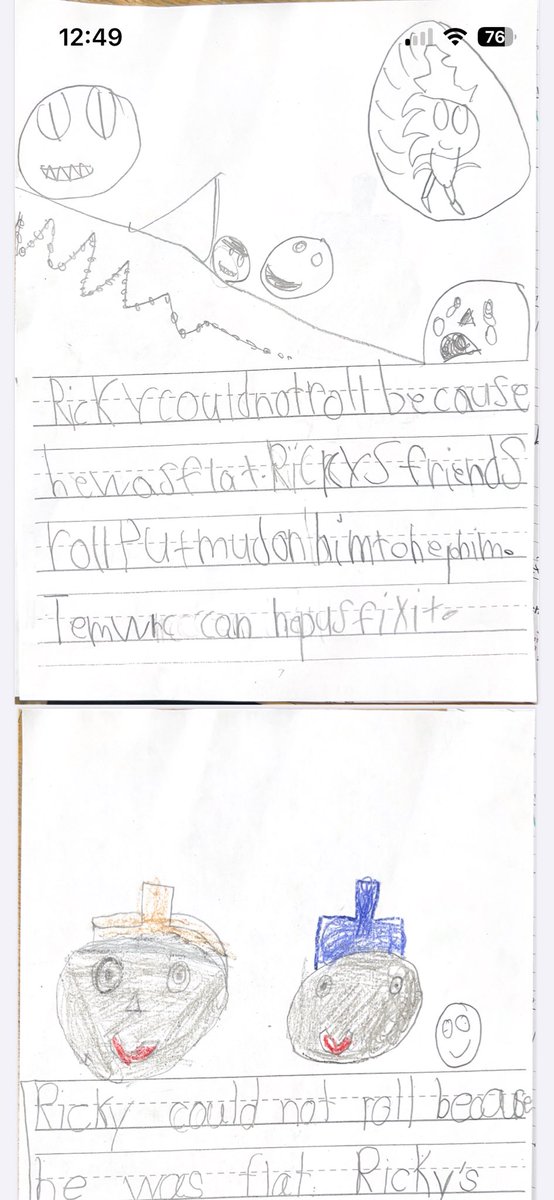 12:49
76
Ricky couldnotroll because
hewasflat. RickYS friends
roll Putmudon himtohephim.
Temwrc can hepusfixit.
7
Ricky could not roll because
he was flat. Ricky's